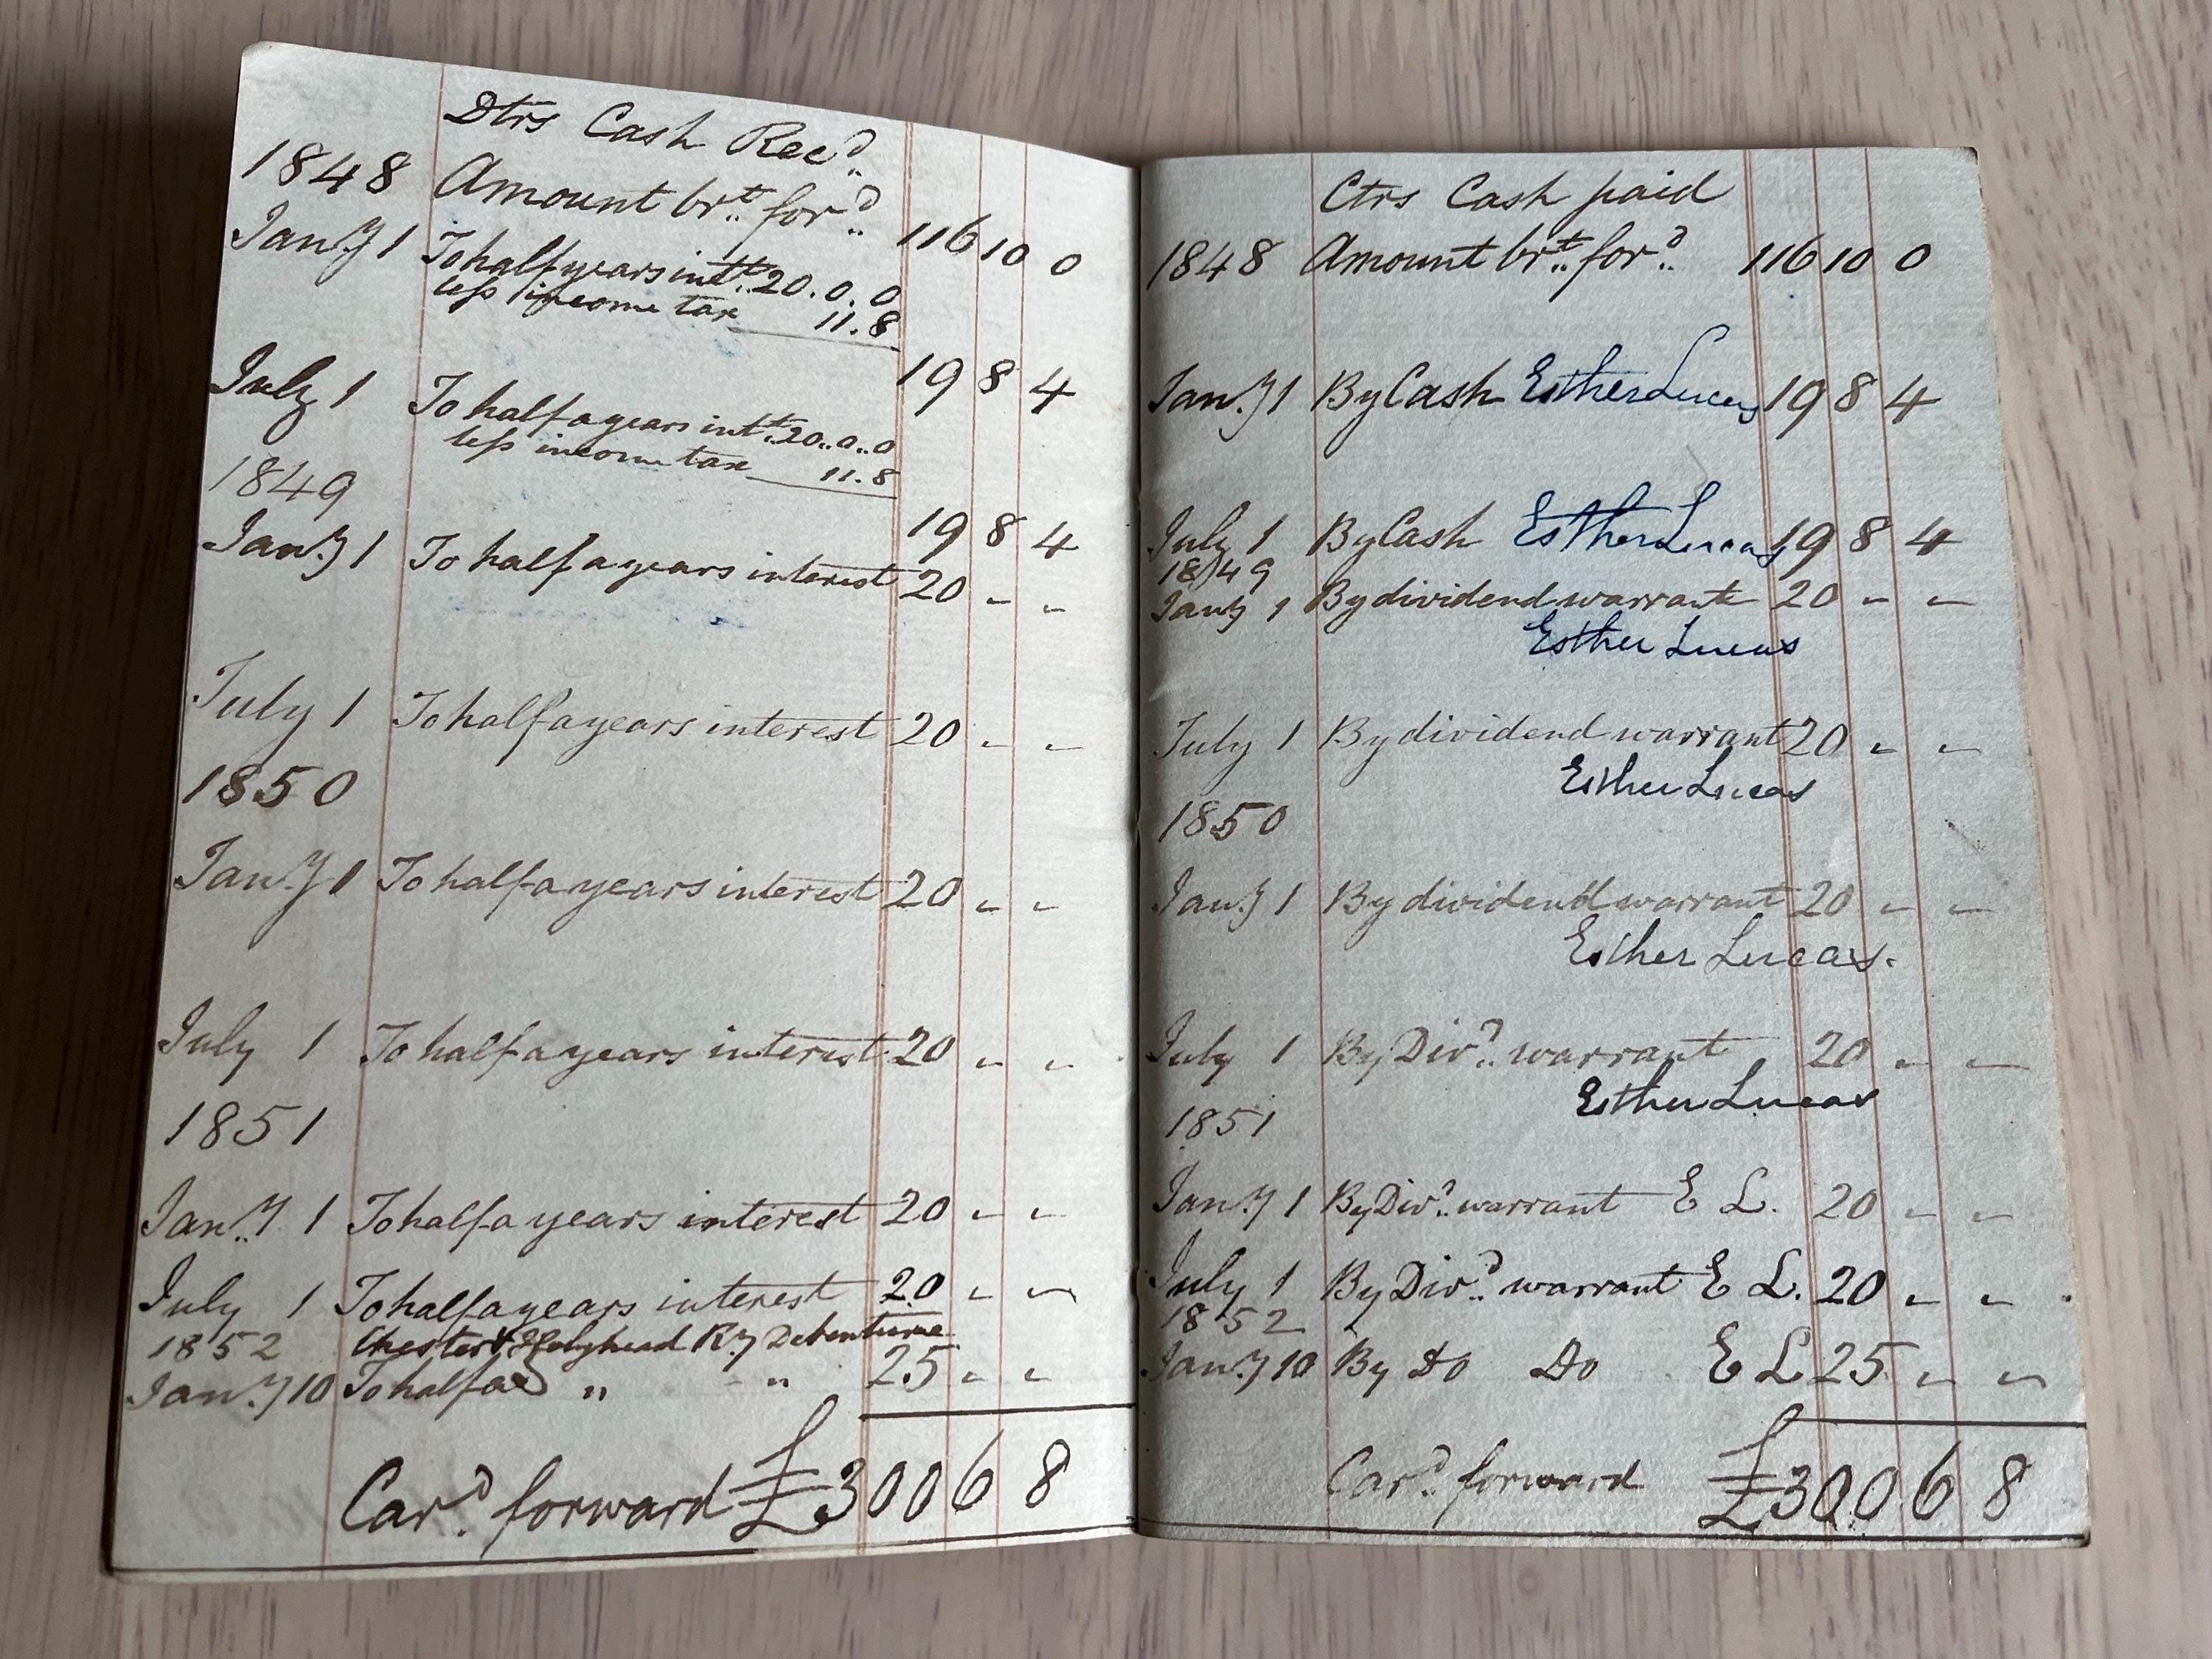 Dtrs Cash Rec.d
1848 Amount br.t for.d 116 10 0
Jan.y 1 To half years int.t 20.0.0
less income tax 11.8
19 8 4
July 1 To half a years int.t 20..0..0
less income tax 11.8
19 8 4
1849
Jan.y 1 To half a years interest 20 - -
July 1 To half a years interest 20 - -
1850
Jan.y 1 To half a years interest 20 - -
July 1 To half a years interest 20 - -
1851
Jan.y 1 To half a years interest 20 - -
July 1 To half a years interest 20 - -
1852 Chester & Holyhead R.y Debenture
Jan.y 10 To half a " " 25 - -
Car.d forward £300 6 8
Ctrs Cash paid
1848 Amount br.t for.d 116 10 0
Jan.y 1 By Cash Esther Lucas 19 8 4
July 1 By Cash Esther Lucas 19 8 4
1849
Jan.y 1 By dividend warrant 20 - -
Esther Lucas
July 1 By dividend warrant 20 - -
Esther Lucas
1850
Jan.y 1 By dividend warrant 20 - -
Esther Lucas.
July 1 By Div.d warrant 20 - -
Esther Lucas
1851
Jan.y 1 By Div.d warrant E L. 20 - -
July 1 By Div.d warrant E L. 20 - -
1852
Jan.y 10 By Do Do E L 25 - -
Car.d forward £300 6 8